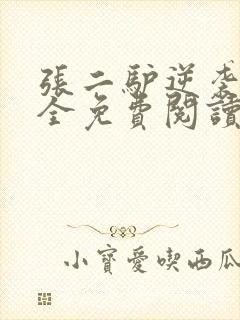 張二馿逆袭
全免費閱讀
小寶愛喫西瓜